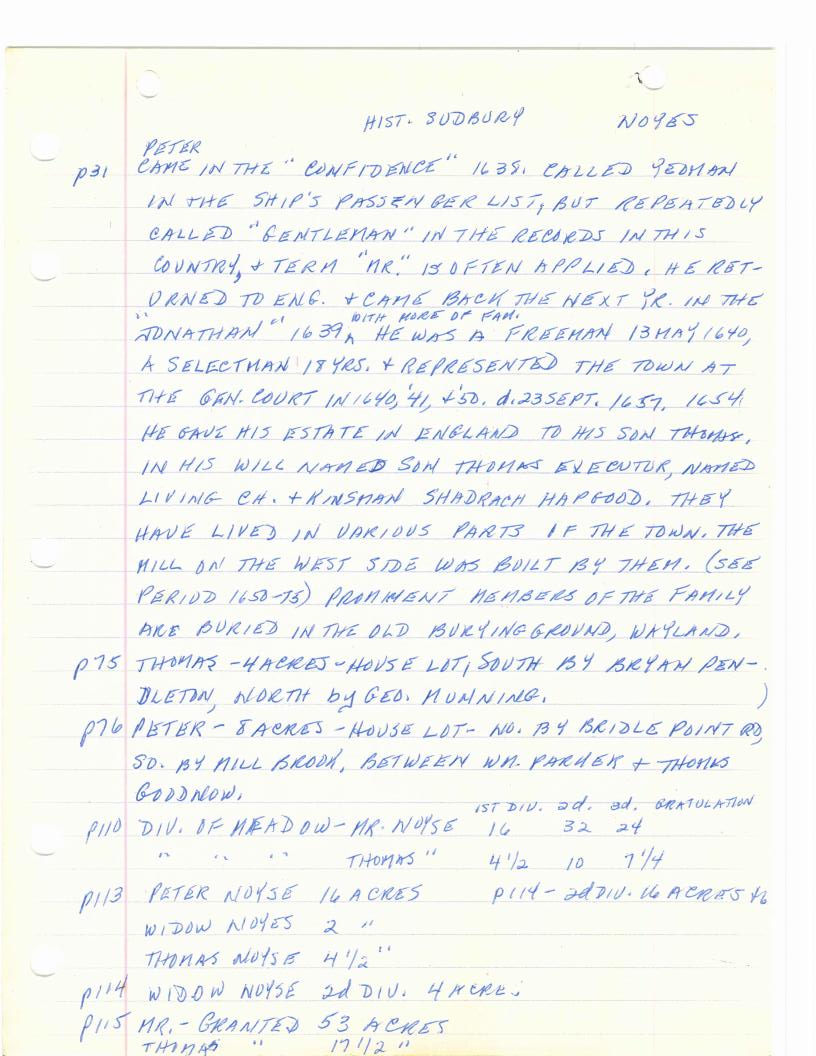 HIST. SUDBURY NOYES
PETER
p31 CAME IN THE "CONFIDENCE" 1638. CALLED YEOMAN
IN THE SHIP'S PASSENGER LIST, BUT REPEATEDLY
CALLED "GENTLEMAN" IN THE RECORDS IN THIS
COUNTRY, + TERM "MR." IS OFTEN APPLIED. HE RET-
URNED TO ENG. + CAME BACK THE NEXT YR. IN THE
WITH MORE OF FAM.
"JONATHAN" 1639, HE WAS A FREEMAN 13 MAY 1640,
A SELECTMAN 18 YRS. + REPRESENTED THE TOWN AT
THE GEN. COURT IN 1640, '41, + '50. d. 23 SEPT. 1657. 1654
HE GAVE HIS ESTATE IN ENGLAND TO HIS SON THOMAS.
IN HIS WILL NAMED SON THOMAS EXECUTUR, NAMED
LIVING CH. + KINSMAN SHADRACH HAPGOOD. THEY
HAVE LIVED IN VARIOUS PARTS OF THE TOWN. THE
MILL ON THE WEST SIDE WAS BUILT BY THEM. (SEE
PERIOD 1650-75) PROMINENT MEMBERS OF THE FAMILY
ARE BURIED IN THE OLD BURYING GROUND, WAYLAND.
p75 THOMAS - 4 ACRES - HOUSE LOT, SOUTH BY BRYAN PEN-
DLETON, NORTH by GEO. MUNNING. )
p76 PETER - 8 ACRES - HOUSE LOT - NO. BY BRIDLE POINT RD,
SO. BY MILL BROOK, BETWEEN WM. PARKER + THOMAS
GOODNOW.
1ST DIV. 2d. 3d. GRATULATION
p110 DIV. OF MEADOW - MR. NOYSE 16 32 24
" " " THOMAS " 4 1/2 10 7 1/4
p113 PETER NOYSE 16 ACRES p114 - 2d DIV. 16 ACRES +6
WIDOW NOYES 2 "
THOMAS NOYSE 4 1/2 "
p114 WIDOW NOYSE 2d DIV. 4 ACRE.
p115 MR. - GRANTED 53 ACRES
THOMAS " 17 1/2 "